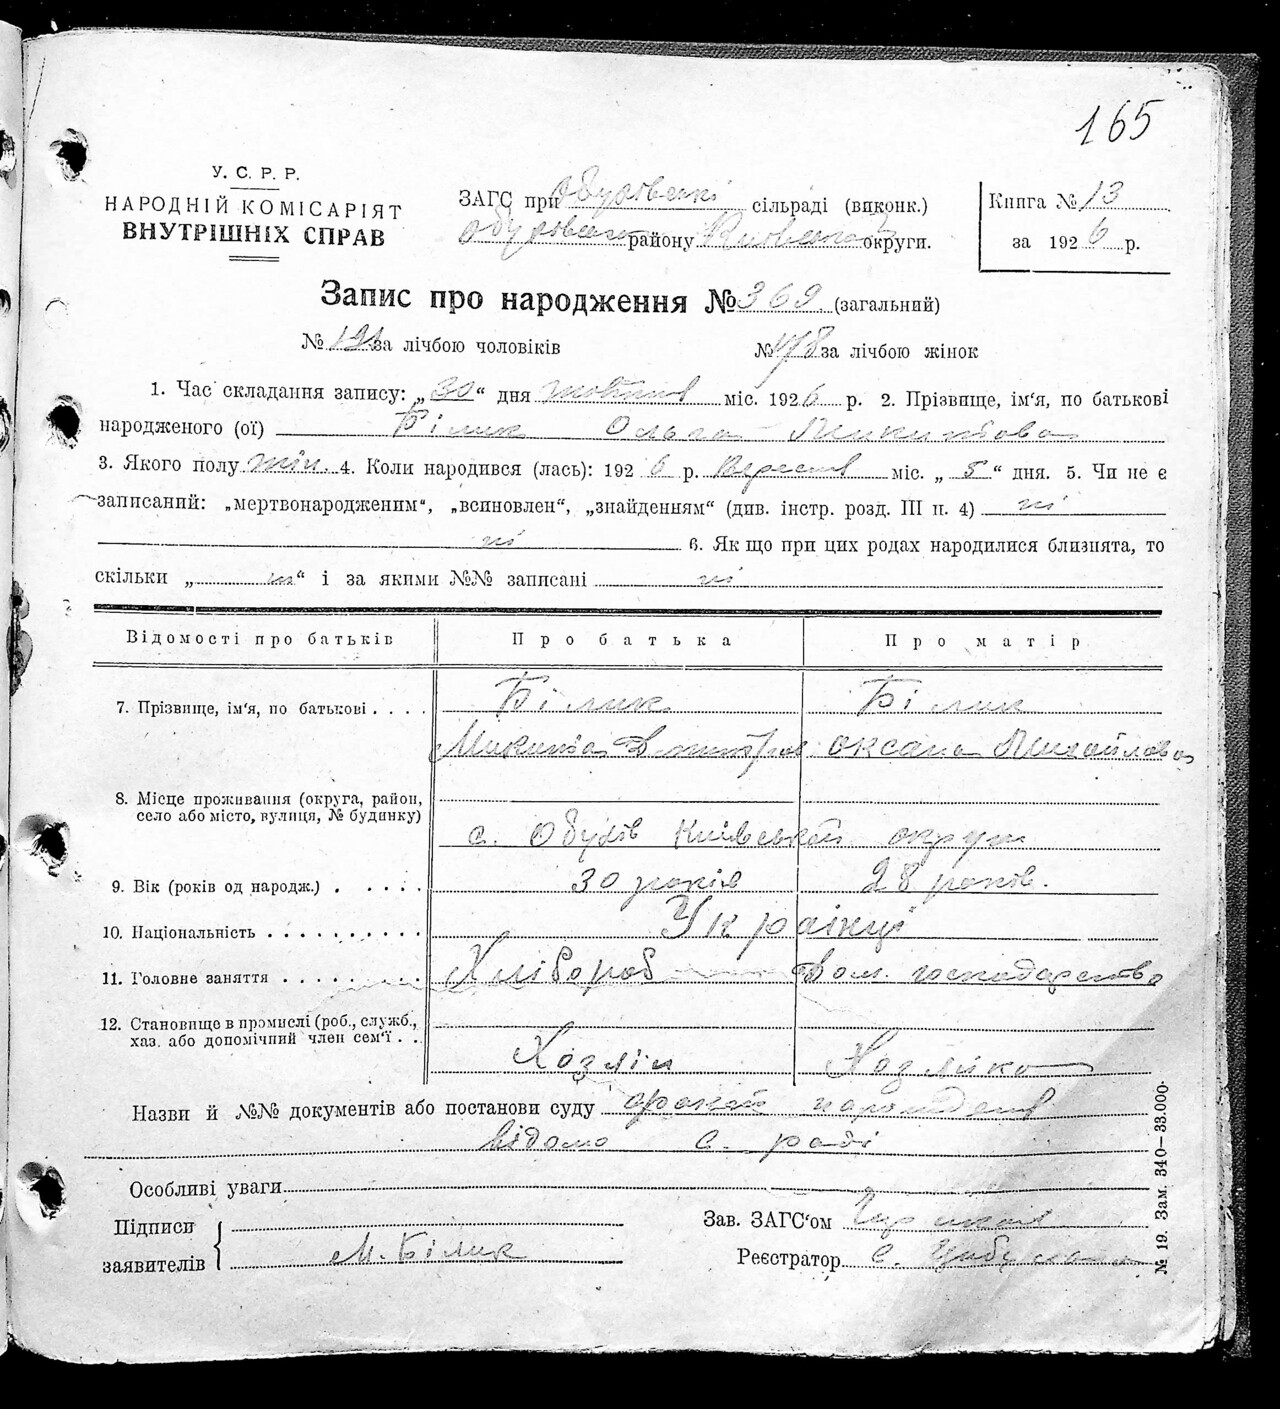 165
У. С. Р. Р.
НАРОДНІЙ КОМІСАРІЯТ
ВНУТРІШНІХ СПРАВ
ЗАГС при Обухівські сільраді (виконк.)
району округи.
Книга № 13
за 1926 р.
Запис про народження № 369 (загальний)
№ за лічбою чоловіків
№ 178 за лічбою жінок
1. Час складання запису: „30“ дня жовтня міс. 1926 р. 2. Прізвище, ім'я, по батькові
народженого (ої) Білик Ольга Микитова
3. Якого полу жін. 4. Коли народився (лась): 1926 р. Вересня міс. „5“ дня. 5. Чи не є
записаний: „мертвонародженим“, „всиновлен“, „знайденням“ (див. інстр. розд. III п. 4) ні
ні 6. Як що при цих родах народилися близнята, то
скільки „ “ і за якими №№ записані ні
Відомості про батьків Про батька Про матір
7. Прізвище, ім'я, по батькові . . . . Білик Білик
Микита Оксана Михайлова
8. Місце проживання (округа, район,
село або місто, вулиця, № будинку)
с. Обухів Київської округи
9. Вік (років од народж.) . . . . . 30 років 28 років.
10. Національність . . . . . . . . . . Українці
11. Головне заняття . . . . . . . Хлібороб Дом. господарство
12. Становище в промислі (роб., служб.,
хаз. або допомічний член сем'ї . . Хозяїн Хозяйка
Назви й №№ документів або постанови суду факт народження
відомо с. раді
Особливі уваги
Підписи
заявителів М. Білик
Зав. ЗАГС'ом
Реєстратор С.
№ 19. Зам. 340—33.000.